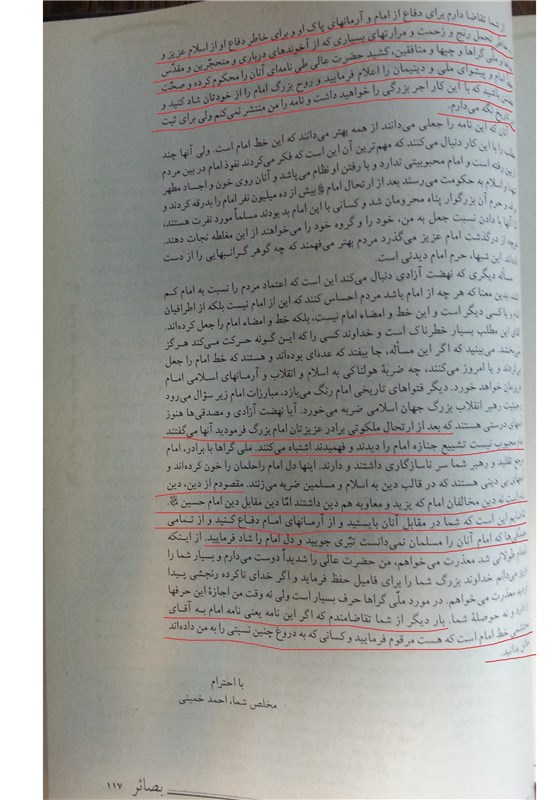 از شما تقاضا دارم برای دفاع از امام و آرمانهای پاک او و برای خاطر دفاع او از اسلام عزیز و
تحمل رنج و زحمت و مرارتهای بسیاری که از آخوندهای درباری و متحجّرین و مقدّس
و ملی گراها و چپها و منافقین، کشید حضرت عالی طی نامه‌ای آنان را محکوم کرده و صحّت
امام و پیشوای ملی و دینیمان را اعلام فرمایید و روح بزرگ امام را از خودتان شاد کنید و
باشید که با این کار اجر بزرگی را خواهید داشت و نامه را من منتشر نمی‌کنم ولی برای ثبت
تاریخ نگه می‌دارم.
که این نامه را جعلی می‌دانند از همه بهتر می‌دانند که این خط امام است. ولی آنها چند
را با این کار دنبال می‌کنند که مهم‌ترین آن این است که فکر می‌کردند نفوذ امام در بین مردم
بین رفته است و امام محبوبیتی ندارد و با رفتن او نظام می‌پاشد و آنان روی خون و اجساد مطهر
و اسلام به حکومت می‌رسند بعد از ارتحال امام بیش از ده میلیون نفر امام را بدرقه کردند و
حرم آن بزرگوار پناه محرومان شد و کسانی با این امام بد بودند مسلماً مورد نفرت هستند،
آنها با دادن نسبت جعل به من، خود را و گروه خود را می‌خواهند از این مغلطه نجات دهند.
از درگذشت امام عزیز می‌گذرد مردم بهتر می‌فهمند که چه گوهر گرانبهایی را از دست
این شبها، حرم امام دیدنی است.
مسأله دیگری که نهضت آزادی دنبال می‌کند این است که اعتماد مردم را نسبت به امام کم
بدین معنا که هر چه از امام باشد مردم احساس کنند که این از امام نیست بلکه از اطرافیان
یا کسی دیگر است و این خط و امضاء امام نیست، بلکه خط و امضاء امام را جعل کرده‌اند.
این مطلب بسیار خطرناک است و خداوند کسی را که این گونه حرکت می‌کند هرگز
می‌بینید که اگر این مسأله، جا بیفتد که عده‌ای بوده‌اند و هستند که خط امام را جعل
و یا امروز می‌کنند، چه ضربهٔ هولناکی به اسلام و انقلاب و آرمانهای اسلامی امام
خواهد خورد. دیگر فتواهای تاریخی امام رنگ می‌بازد، مبارزات امام زیر سؤال می‌رود
رهبر انقلاب بزرگ جهان اسلامی ضربه می‌خورد. آیا نهضت آزادی و مصدقی‌ها هنوز
درستی هستند که بعد از ارتحال ملکوتی برادر عزیزتان امام بزرگ فرمودید آنها می‌گفتند
محبوب نیست تشییع جنازه امام را دیدند و فهمیدند اشتباه می‌کنند. ملی گراها با برادر، امام
تقلید و رهبر شما سر ناسازگاری داشتند و دارند. اینها دل امام راحلمان را خون کرده‌اند و
بی دینی هستند که در قالب دین به اسلام و مسلمین ضربه می‌زنند. مقصودم از دین، دین
نه دین مخالفان امام که یزید و معاویه هم دین داشتند امّا دین مقابل دین امام حسین
این است که شما در مقابل آنان بایستید و از آرمانهای امام دفاع کنید و از تمامی
که امام آنان را مسلمان نمی‌دانست تبّری جویید و دل امام را شاد فرمایید. از اینکه
طولانی شد معذرت می‌خواهم، من حضرت عالی را شدیداً دوست می‌دارم و بسیار شما را
خداوند بزرگ شما را برای فامیل حفظ فرماید و اگر خدای ناکرده رنجشی پیدا
معذرت می‌خواهم. در مورد ملّی گراها حرف بسیار است ولی نه وقت من اجازهٔ این حرفها
و نه حوصلهٔ شما. بار دیگر از شما تقاضامندم که اگر این نامه یعنی نامه امام به آقای
خط امام است که هست مرقوم فرمایید و کسانی که به دروغ چنین نسبتی را به من داده‌اند
بدانید.
با احترام
مخلص شما، احمد خمینی
بصائر ۱۱۷